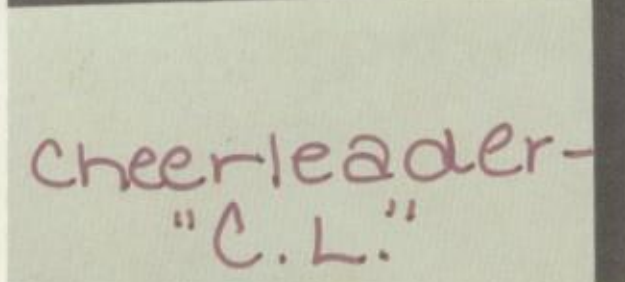 cheerleader-
"C.L."